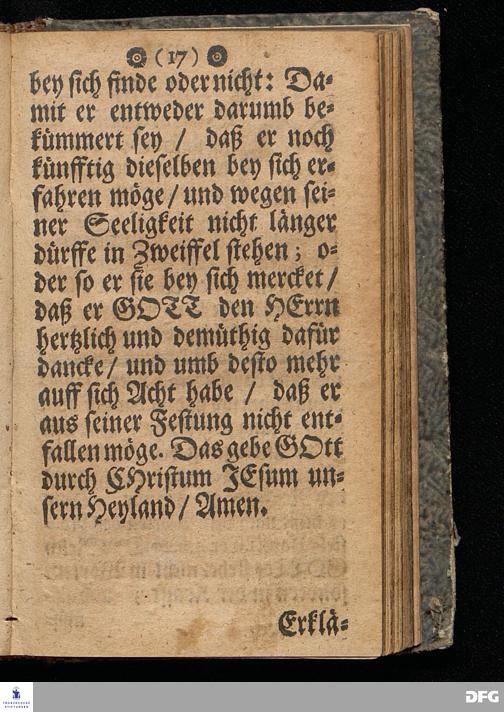 (17)
bey sich finde oder nicht: Da⸗
mit er entweder darumb be⸗
kümmert sey / daß er noch
künfftig dieselben bey sich er⸗
fahren möge / und wegen sei⸗
ner Seeligkeit nicht länger
dürffe in Zweiffel stehen; o⸗
der so er sie bey sich mercket /
daß er GOTT den HErrn
hertzlich und demüthig dafür
dancke / und umb desto mehr
auff sich Acht habe / daß er
aus seiner Festung nicht ent⸗
fallen möge. Das gebe GOtt
durch CHristum JEsum un⸗
sern Heyland / Amen.
Erklä⸗
FRANCKESCHE
STIFTUNGEN
DFG